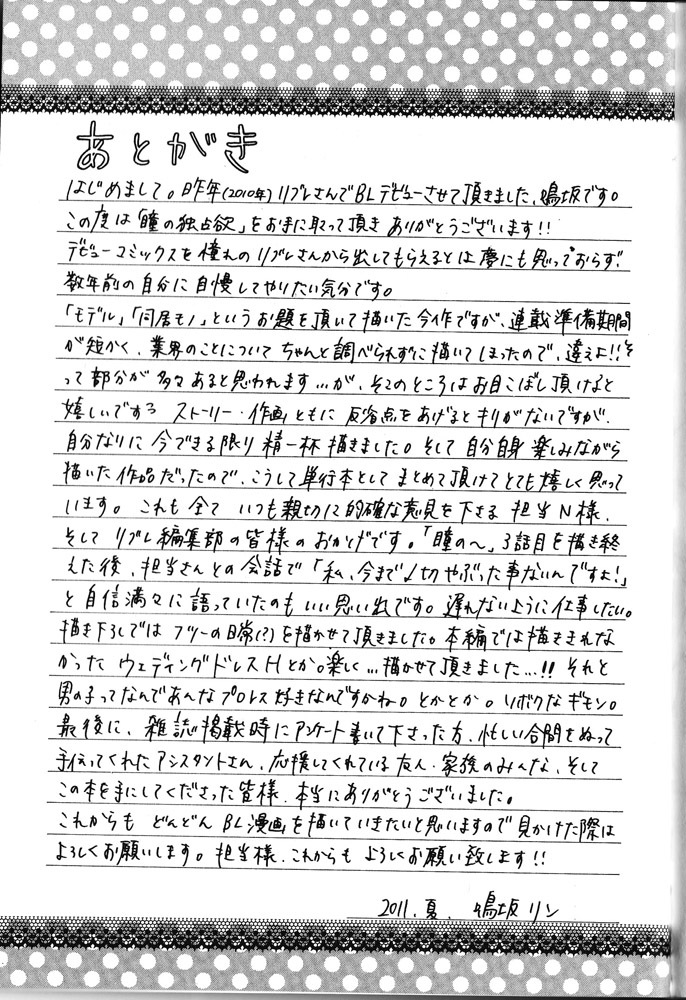 あとがき
はじめまして。昨年(2010年)リブレさんでBLデビューさせて頂きました、鳴坂です。
この度は「瞳の独占欲」をお手に取って頂きありがとうございます!!
デビューコミックスを憧れのリブレさんから出してもらえるとは夢にも思っておらず、
数年前の自分に自慢してやりたい気分です。
「モデル」「同居モノ」というお題を頂いて描いた今作ですが、連載準備期間
が短かく、業界のことについてちゃんと調べられずに描いてしまったので、違えよ!!そ
って部分が多々あると思われます…が、そこのところはお目こぼし頂けると
嬉しいです ストーリー・作画ともに反省点をあげるとキリがないですが、
自分なりに今できる限り精一杯描きました。そして自分自身楽しみながら
描いた作品だったので、こうして単行本としてまとめて頂けてとても嬉しく思って
います。これも全ていつも親切に的確な意見を下さる担当N様、
そしてリブレ編集部の皆様のおかげです。「瞳の〜」3話目を描き終
えた後、担当さんとの会話で「私、今まで〆切やぶった事ないんですよ!」
と自信満々に語っていたのもいい思い出です。遅れないように仕事したい。
描き下ろしではフツーの日常(?)を描かせて頂きました。本編では描ききれな
かったウェディングドレスHとか。楽しく…描かせて頂きました…!!それと
男の子ってなんであんなプロレス好きなんですかね。とかとか。ソボクなギモン。
最後に、雑誌掲載時にアンケート書いて下さった方、忙しい合間をぬって
手伝ってくれたアシスタントさん、応援してくれている友人・家族のみんな、そして
この本を手にしてくださった皆様、本当にありがとうございました。
これからもどんどんBL漫画を描いていきたいと思いますので見かけた際は
よろしくお願いします。担当様、これからもよろしくお願い致します!!
2011.夏. 鳴坂リン